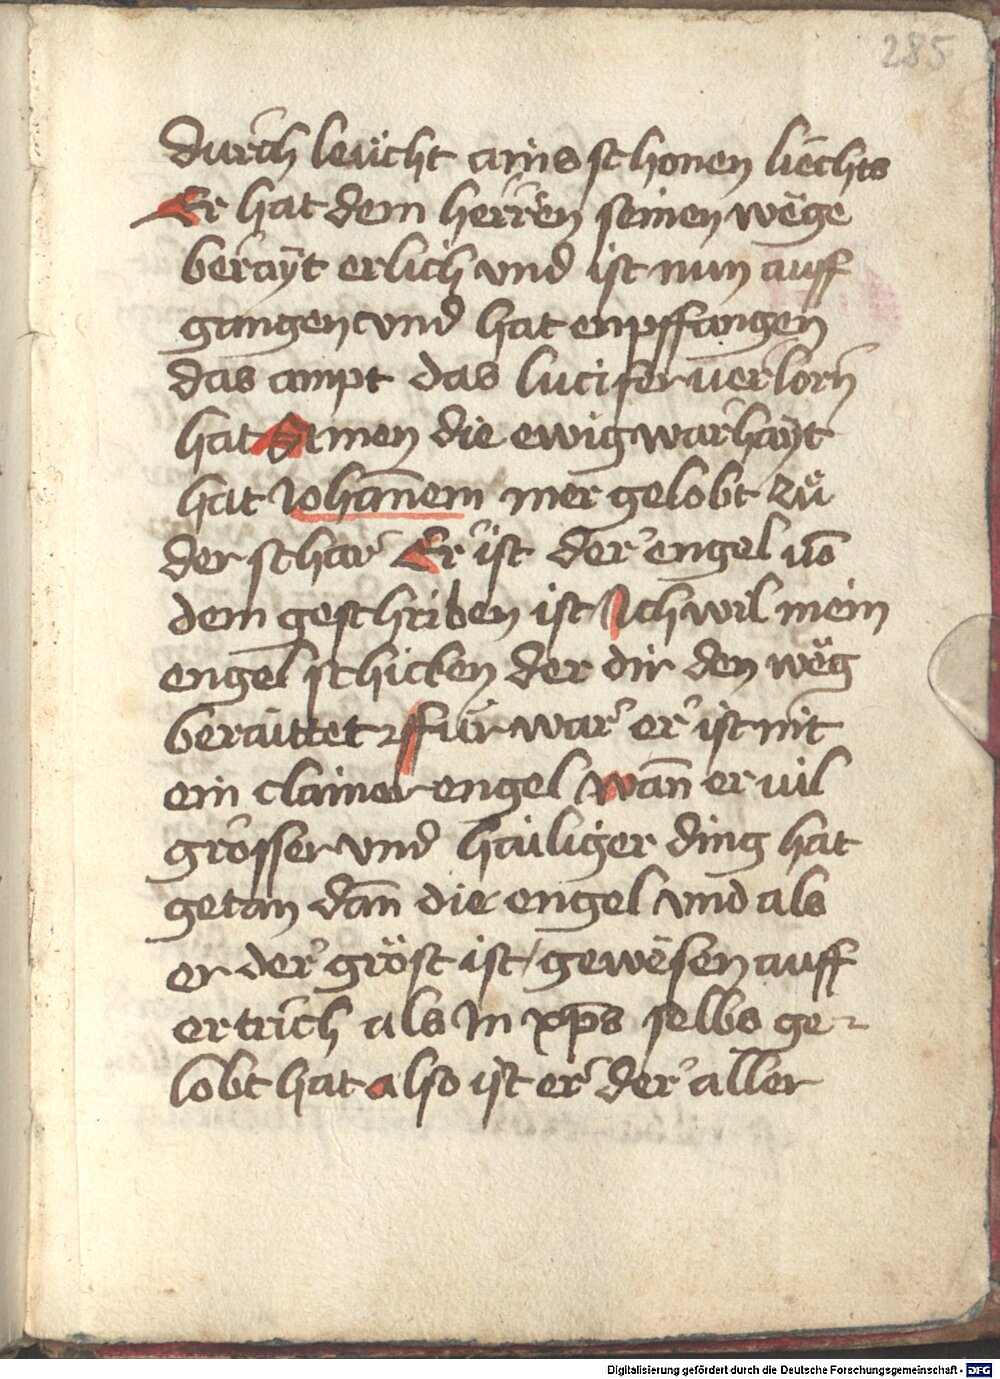 285
durch leücht ains schonen liechts
Er hat dem herren seinen wëge
berayt erlich vnd ist nun auff
gangen vnd hat enpffangen
das ampt das lucifer uerlorn
hat Amen die ewig warhayt
hat Iohañem mer gelobt zü
der schar Er ist der engel uō
dem geschriben ist Ich wil mein
engel schicken der dir den wëg
beraittet ffür war er ist nit
ein clainer engel wañ er uil
grösser vnd hailiger ding hat
getan dañ die engel vnd als
er der gröst ist / gewësen auff
ertrich als In xp̄s selbs ge
lobt hat also ist er der aller
Digitalisierung gefördert durch die Deutsche Forschungsgemeinschaft - DFG